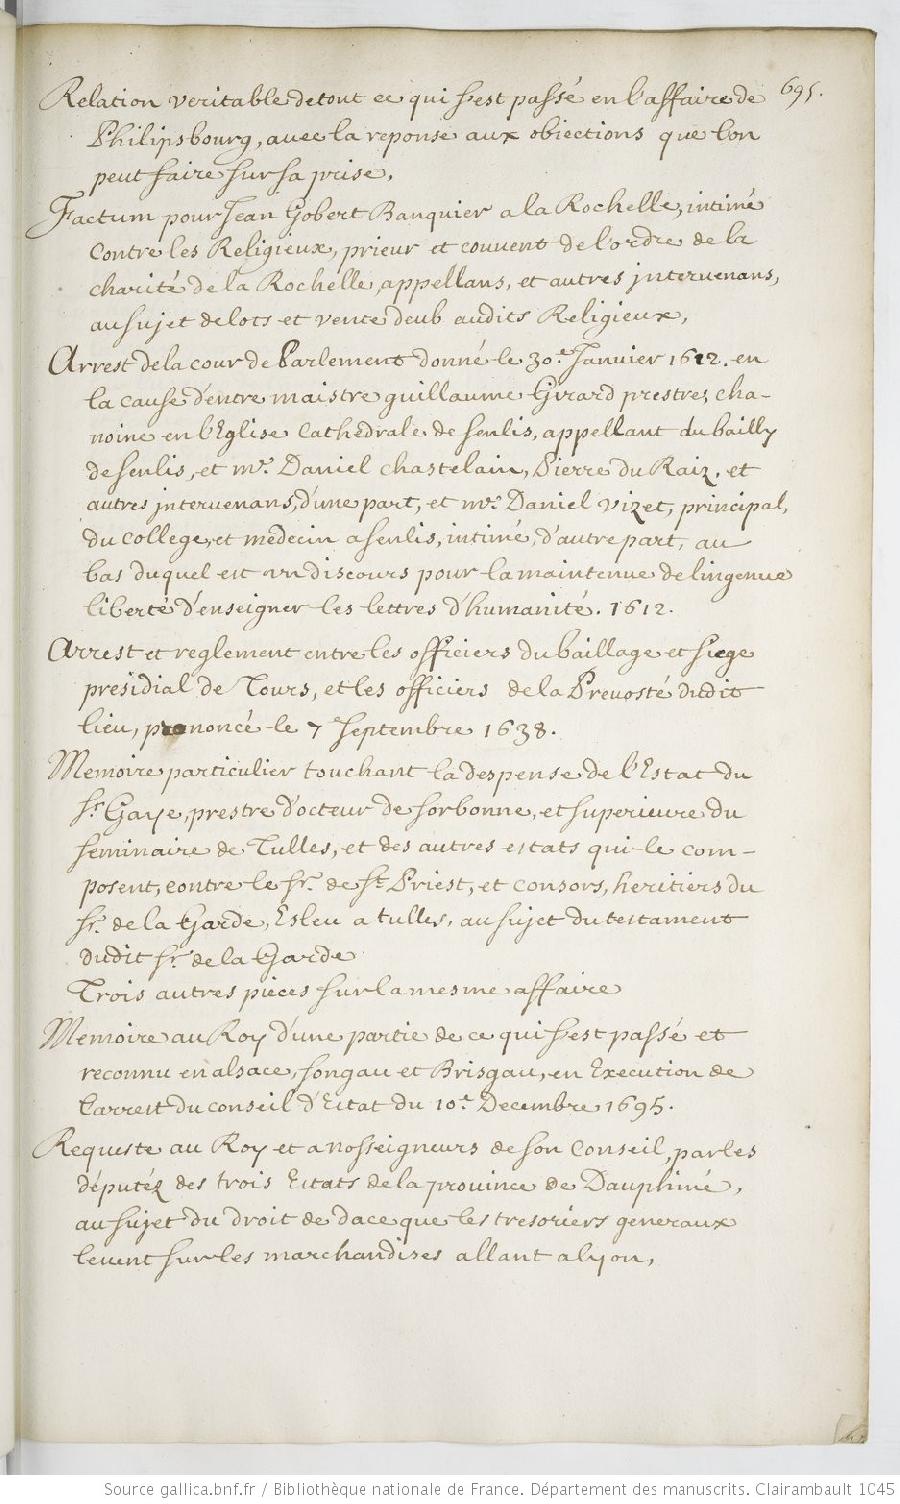 695.
Relation veritable de tout ce qui s'est passé en l'affaire de
Philipsbourg, avec la reponse aux obiections que l'on
peut faire sur sa prise.
Factum pour Jean Gobert Banquier a la Rochelle, intimé
contre les Religieux, prieur et couvent de l'ordre de la
charité de la Rochelle, appellans, et autres intervenans,
au sujet de lots et vente deub audits Religieux,
Arrest de la cour de Parlement donné le 30.e Janvier 1612. en
la cause d'entre maistre guillaume Girard prestre, cha-
noine en l'Eglise Cathedrale de Senlis, appellant du bailly
de Senlis, et mr. Daniel Chastelain, Pierre du Raiz, et
autres intervenans, d'une part, et mr. Daniel Vizet, principal,
du College, et medecin a Senlis, intimé, d'autre part, au
bas duquel est un discours pour la maintenue de lingenue
liberté d'enseigner les lettres d'humanité. 1612.
Arrest et reglement entre les officiers du baillage et siege
presidial de Tours, et les officiers de la Prevosté dudit
lieu, prononcé le 7 Septembre 1638.
Memoire particulier touchant la despense de l'Estat du
Sr. Gaye, prestre d'octeur de Sorbonne, et superieure du
Seminaire de Tulles, et des autres estats qui le com-
posent, contre le Sr. de St Priest, et consors, heritiers du
Sr. de la Garde, Esleu a tulles, au sujet du testament
dudit Sr. de la Garde
Trois autres pieces sur la mesme affaire
Memoire au Roy d'une partie de ce qui s'est passé et
reconnu en alsace, songau et Brisgau, en Execution de
l'arrest du conseil d'Estat du 10.e Decembre 1695.
Requeste au Roy et a nosseigneurs de son Conseil, par les
députéz des trois Estats de la province de Dauphiné,
au sujet du droit de dace que les tresoriers generaux
levent sur les marchandises allant a lyon,
Source gallica.bnf.fr / Bibliothèque nationale de France. Département des manuscrits. Clairambault 1045